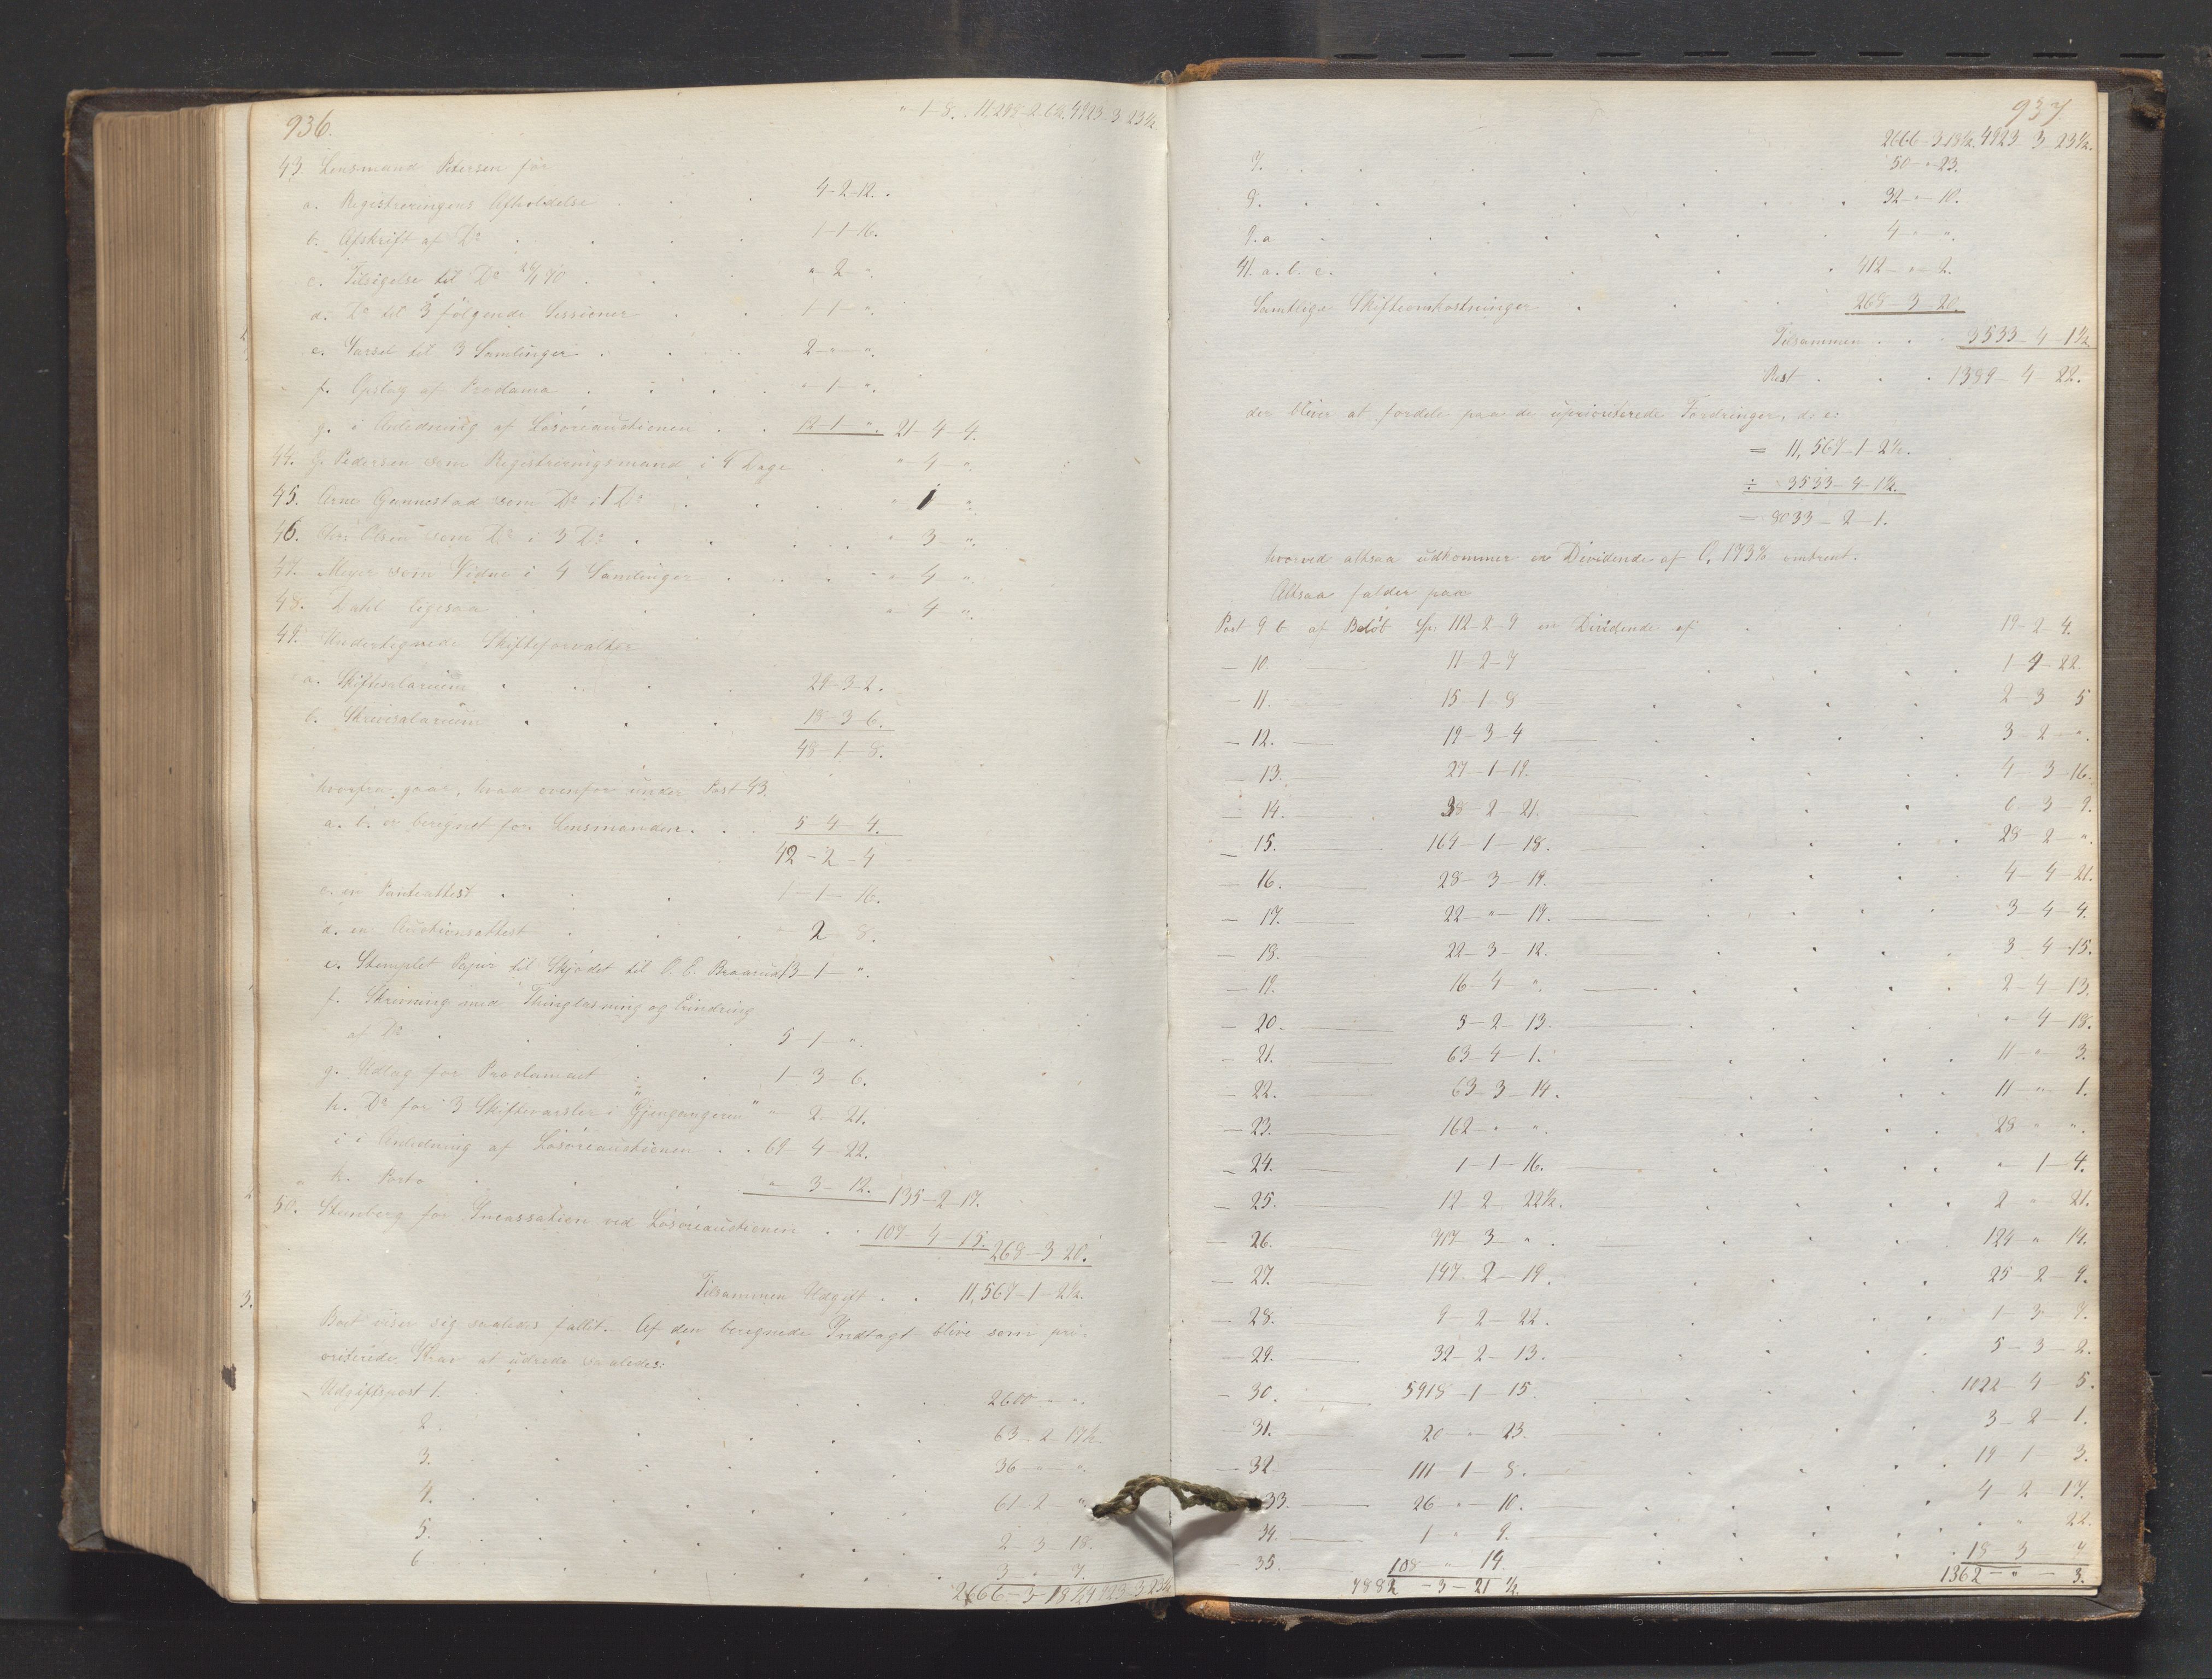 936.
" - 1 - 8. 11,298 - 2 - 6½. 4923 - 3 - 23½
43. Lensmand Petersen for
a. Registreringens Afholdelse . . . 4 - 2 - 12.
b. Afskrift af Do . . . . 1 - 1 - 16.
c. Tilsigelse til Do 70 . . " - 2 - ".
d. Do til 3 følgende Sessioner . . 1 - 1 - ".
e. Varsel til 3 Samlinger . . . 2 - " - ".
f. Opslag af Proclama . . . . " - 1 - ".
g. i Anledning af Løsøreauctionen . . 12 - 1 - ". 21 - 4 - 4.
44. Pedersen som Registreringsmand i 4 Dage . " - 4 - ".
45. Arne Gannestad som Do i 1 Do . . . " - 1 - ".
46. Olsen som Do i 3 Do . . . . " - 3 - ".
47. Meyer som Vidne i 4 Samlinger . . . " - 4 - ".
48. Dahl ligesaa . . . " - 4 - ".
49. Undertegnede Skifteforvalter
a. Skiftesalarium . . . 29 - 3 - 2.
b. Skriversalarium . . . 18 - 3 - 6.
48 - 1 - 8.
hvorfra gaar, hvad ovenfor under Post 43.
a. b. er beregnet for Lensmanden . . . 5 - 4 - 4.
42 - 2 - 4
c. en Panteattest . . . 1 - 1 - 16.
d. en Auctionsattest . . . " 2 - 8.
e. Stemplet Papir til Skjødet til O. E. Braarud 13 - 1 - ".
f. Skrivning med Thinglæsning og
af Do . . . . 5 - 1 - ".
g. Udlæg for Proclamaet . . 1 - 3 - 6.
h. Do for 3 Skiftevarsler i "Gjengangeren" " 2 - 21.
i i Anledning af Løsøreauctionen . . 69 4 - 22.
k. Porto . . . " 3 - 12. 135 - 2 - 17.
50. Steenberg for Incassation ved Løsøreauctionen . . 107 4 - 15. 268 - 3 20.
Tilsammen Udgift . . 11,567 - 1 - 2½.
Boet viser sig saaledes fallit. Af den beregnede Indtægt blive som pri-
oriterede Krav at udrede saaledes:
Udgiftspost 1. . . . . 2600 - " - ".
2. . . . . 63 - 2 - 17½
3. . . . . 36 - " - ".
4. . . . . 61 - 2 - "
5. . . . . 2 - 3 - 18.
6 . . . . 3 - " - 7.
2666 - 3 - 18½ 4923 - 3 23½
937.
2666 - 3 18½. 4923 - 3 - 23½.
7. . . . . 50 - " 23.
8. . . . . 32 - " - 10.
9. a . . . . 4 - " - ".
41. a. b. c. . . . . 412 - " - 2.
Samtlige Skifteomkostninger . . . 268 - 3 - 20.
Tilsammen . . . 3533 - 4 - 1½
Rest . . . 1389 - 4 - 22.
der bliver at fordele paa de uprioriterede Fordringer, d. e.
= 11,567 - 1 - 2½.
÷ 3533 - 4 - 1½.
= 8033 - 2 - 1.
hvorved altsaa udkommer en Dividende af 0,173% omtrent.
Altsaa falder paa
Post 9 b. af Beløb Sp. 112 - 2 - 9 en Dividende af . . . 19 - 2 - 4.
— 10. — 11 - 2 - 7 — . . . 1 - 4 - 22.
— 11. — 15 - 1 - 8 . . . 2 - 3 5
— 12. — 19 - 3 - 4 — . . . 3 - 2 - ".
— 13. — 27 - 1 - 19. — . . . 4 - 3 - 16.
— 14. — 38 - 2 - 21. — . . 6 - 3 - 9.
— 15. — 164 - 1 - 18. — . . 28 - 2 - ".
— 16. — 28 - 3 - 19. — . . 4 - 4 - 21.
— 17. — 22 - " - 19. — . . . 3 - 4 - 4.
— 18. — 22 - 3 - 12. — . . . 3 - 4 - 15.
— 19. — 16 - 4 - ". — . . . 2 - 4 - 13.
— 20. — 5 - 2 - 13. — . . . " 4 - 18.
— 21. — 63 - 4 - 1. — . . . 11 - " - 3.
— 22. — 63 - 3 - 14. — . . . 11 - " - 1.
— 23. — 162 - " - ". . . . 28 - " - ".
— 24. — 1 - 1 - 16. — . . . " - 1 - 4.
— 25. — 12 - 2 - 22½. — . . . 2 " - 21.
— 26. — 717 - 3 - ". . . . 124 - " - 14.
— 27. — 147 - 2 - 19. . . . 25 - 2 - 9.
— 28. — 9 - 2 - 22. . . . 1 - 3 - 7.
— 29. — 32 - 2 - 13. — . . . 5 - 3 - 2.
— 30. — 5918 - 1 - 15. . . . 1022 - 4 - 5.
— 31. — 20 - " - 23. . . . 3 - 2 - 1.
— 32 — 111 - 1 - 8. — . . . 19 - 1 - 3.
33. — 26 - " - 10. — . . . 4 - 2 - 17.
34. — 1 - " - 9. . . . " - " - 22.
— 35. — 108 - " - 14. . . . 18 - 3 - "
7882 - 3 - 21½. 1362 - " - 3.